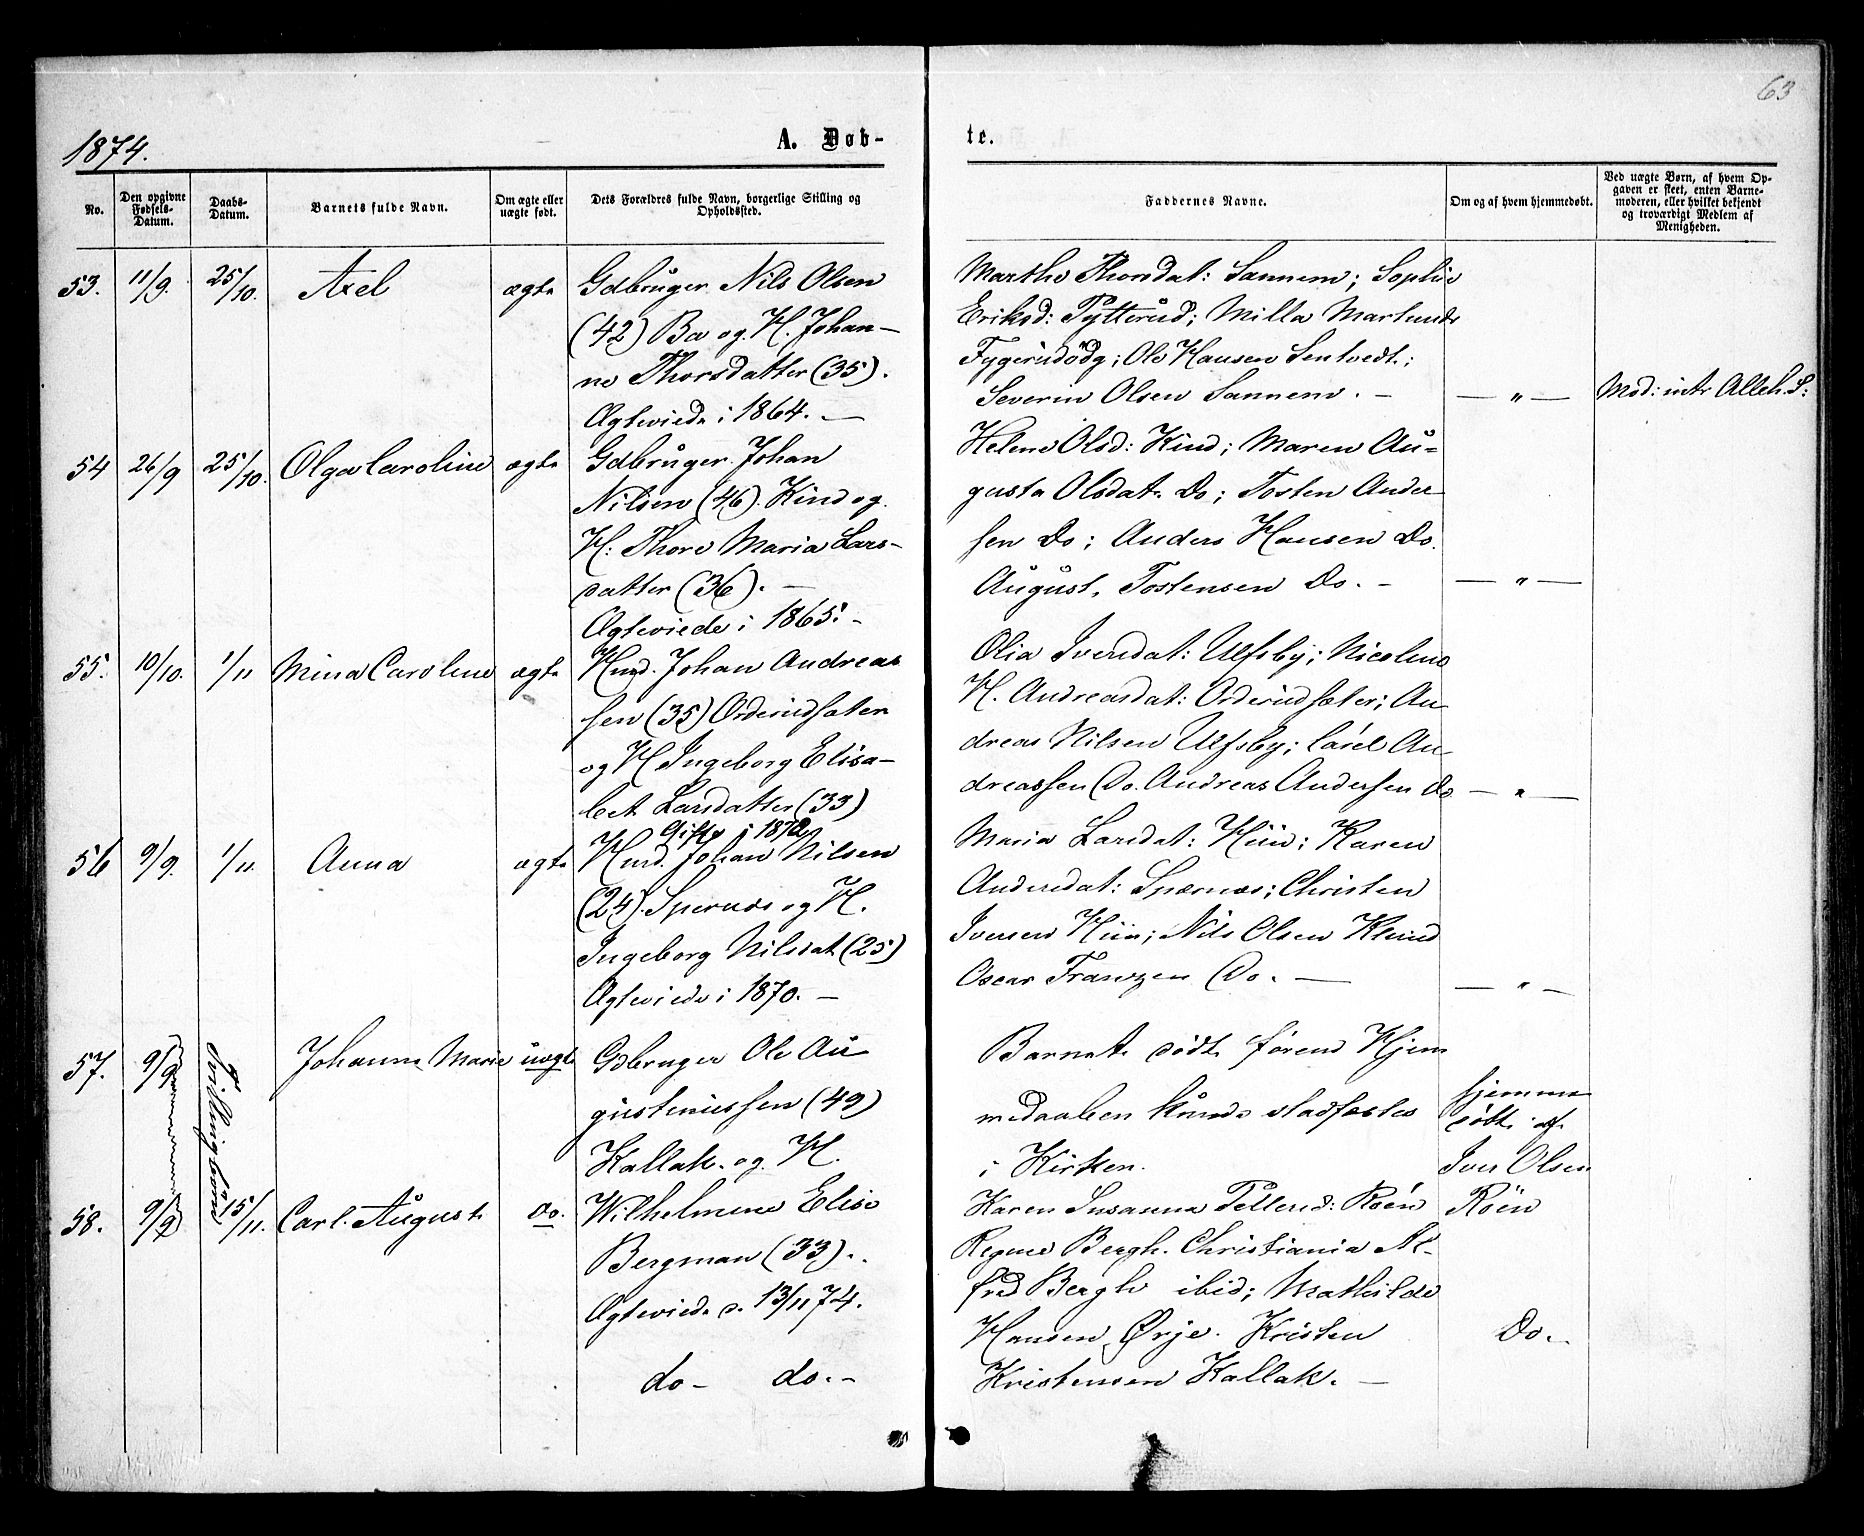 63
1874.
A. Døb-
te.
No.
Den opgivne Fødsels-Datum.
Daabs-Datum.
Barnets fulde Navn.
Om ægte eller uægte født.
Dets Forældres fulde Navn, borgerlige Stilling og Opholdssted.
Faddernes Navne.
Om og af hvem hjemmedøbt.
Ved uægte Børn, af hvem Opgaven er skeet, enten Barnemoderen, eller hvilket bekjendt og troværdigt Medlem af Menigheden.
53. 11/9. 25/10. Axel ægte Gdbruger Nils Olsen
(42) Ba og H. Johan-
ne Thorsdatter (35).
Ægteviede i 1864. —
Marthe Thorsdat: Sannem; Sophie
Eriksd: Tytterud; Milla Marlunds
Ole Hansen Sentvedt;
Severin Olsen Sannem. —
— " —
54 26/9 25/10. Olga Caroline ægte Gdbruger Johan
Nilsen (46). Kind og
H: Thore Maria Lars-
datter (36). —
Ægteviede i 1865. -
Helene Olsd: Kind; Maren Au-
gusta Olsdat. Do; Tosten Ander-
sen Do; Anders Hansen Do.
August. Tostensen Do. -
— " —
55. 10/10. 1/11 Mina Caroline ægte Hmd. Johan Andreas
sen (35) Orderudsæter
og H Ingeborg Elisa-
bet Larsdatter (33)
Gifte i 1872
Olia Iversdat: Ulfsby; Nicoline
H. Andreasdat: Orderudsæter; An
dreas Nilsen Ulfsby; Carel An-
dreassen Do. Andreas Andersen Do
— " —
56 9/9. 1/11. Anna ægte Hmd. Johan Nilsen
(24). Spernæs og H.
Ingeborg Nilsdat (25)
Ægteviede i 1870. —
Maria Larsdat: Hiin; Karen
Andersdat: Spærnæs; Christen
Iversen Hiin; Nils Olsen Klund
Oscar Franzen Do. —
— " —
57. 9/9 Tvillingbørn Johanne Marie uægte Gdbruger Ole Au
gustinussen (49)
Kallak. og H.
Barnet døde førend Hjem
medaaben kunde stadfæstes
i Kirken.
hjemme
døbt af
Iver Olsen
Röen
58. 9/9 15/11. Carl August. do. Wilhelmine Elise
Bergman (33).
Ægteviede d. 13/11 74.
do - do. -
Karen Susanna Pellerud: Röen
Regine Bergh. Christiania Al-
fred Bergh ibid; Mathilde
Hansen Ørje. Kristen
Kristensen Kallak. —
Do. -